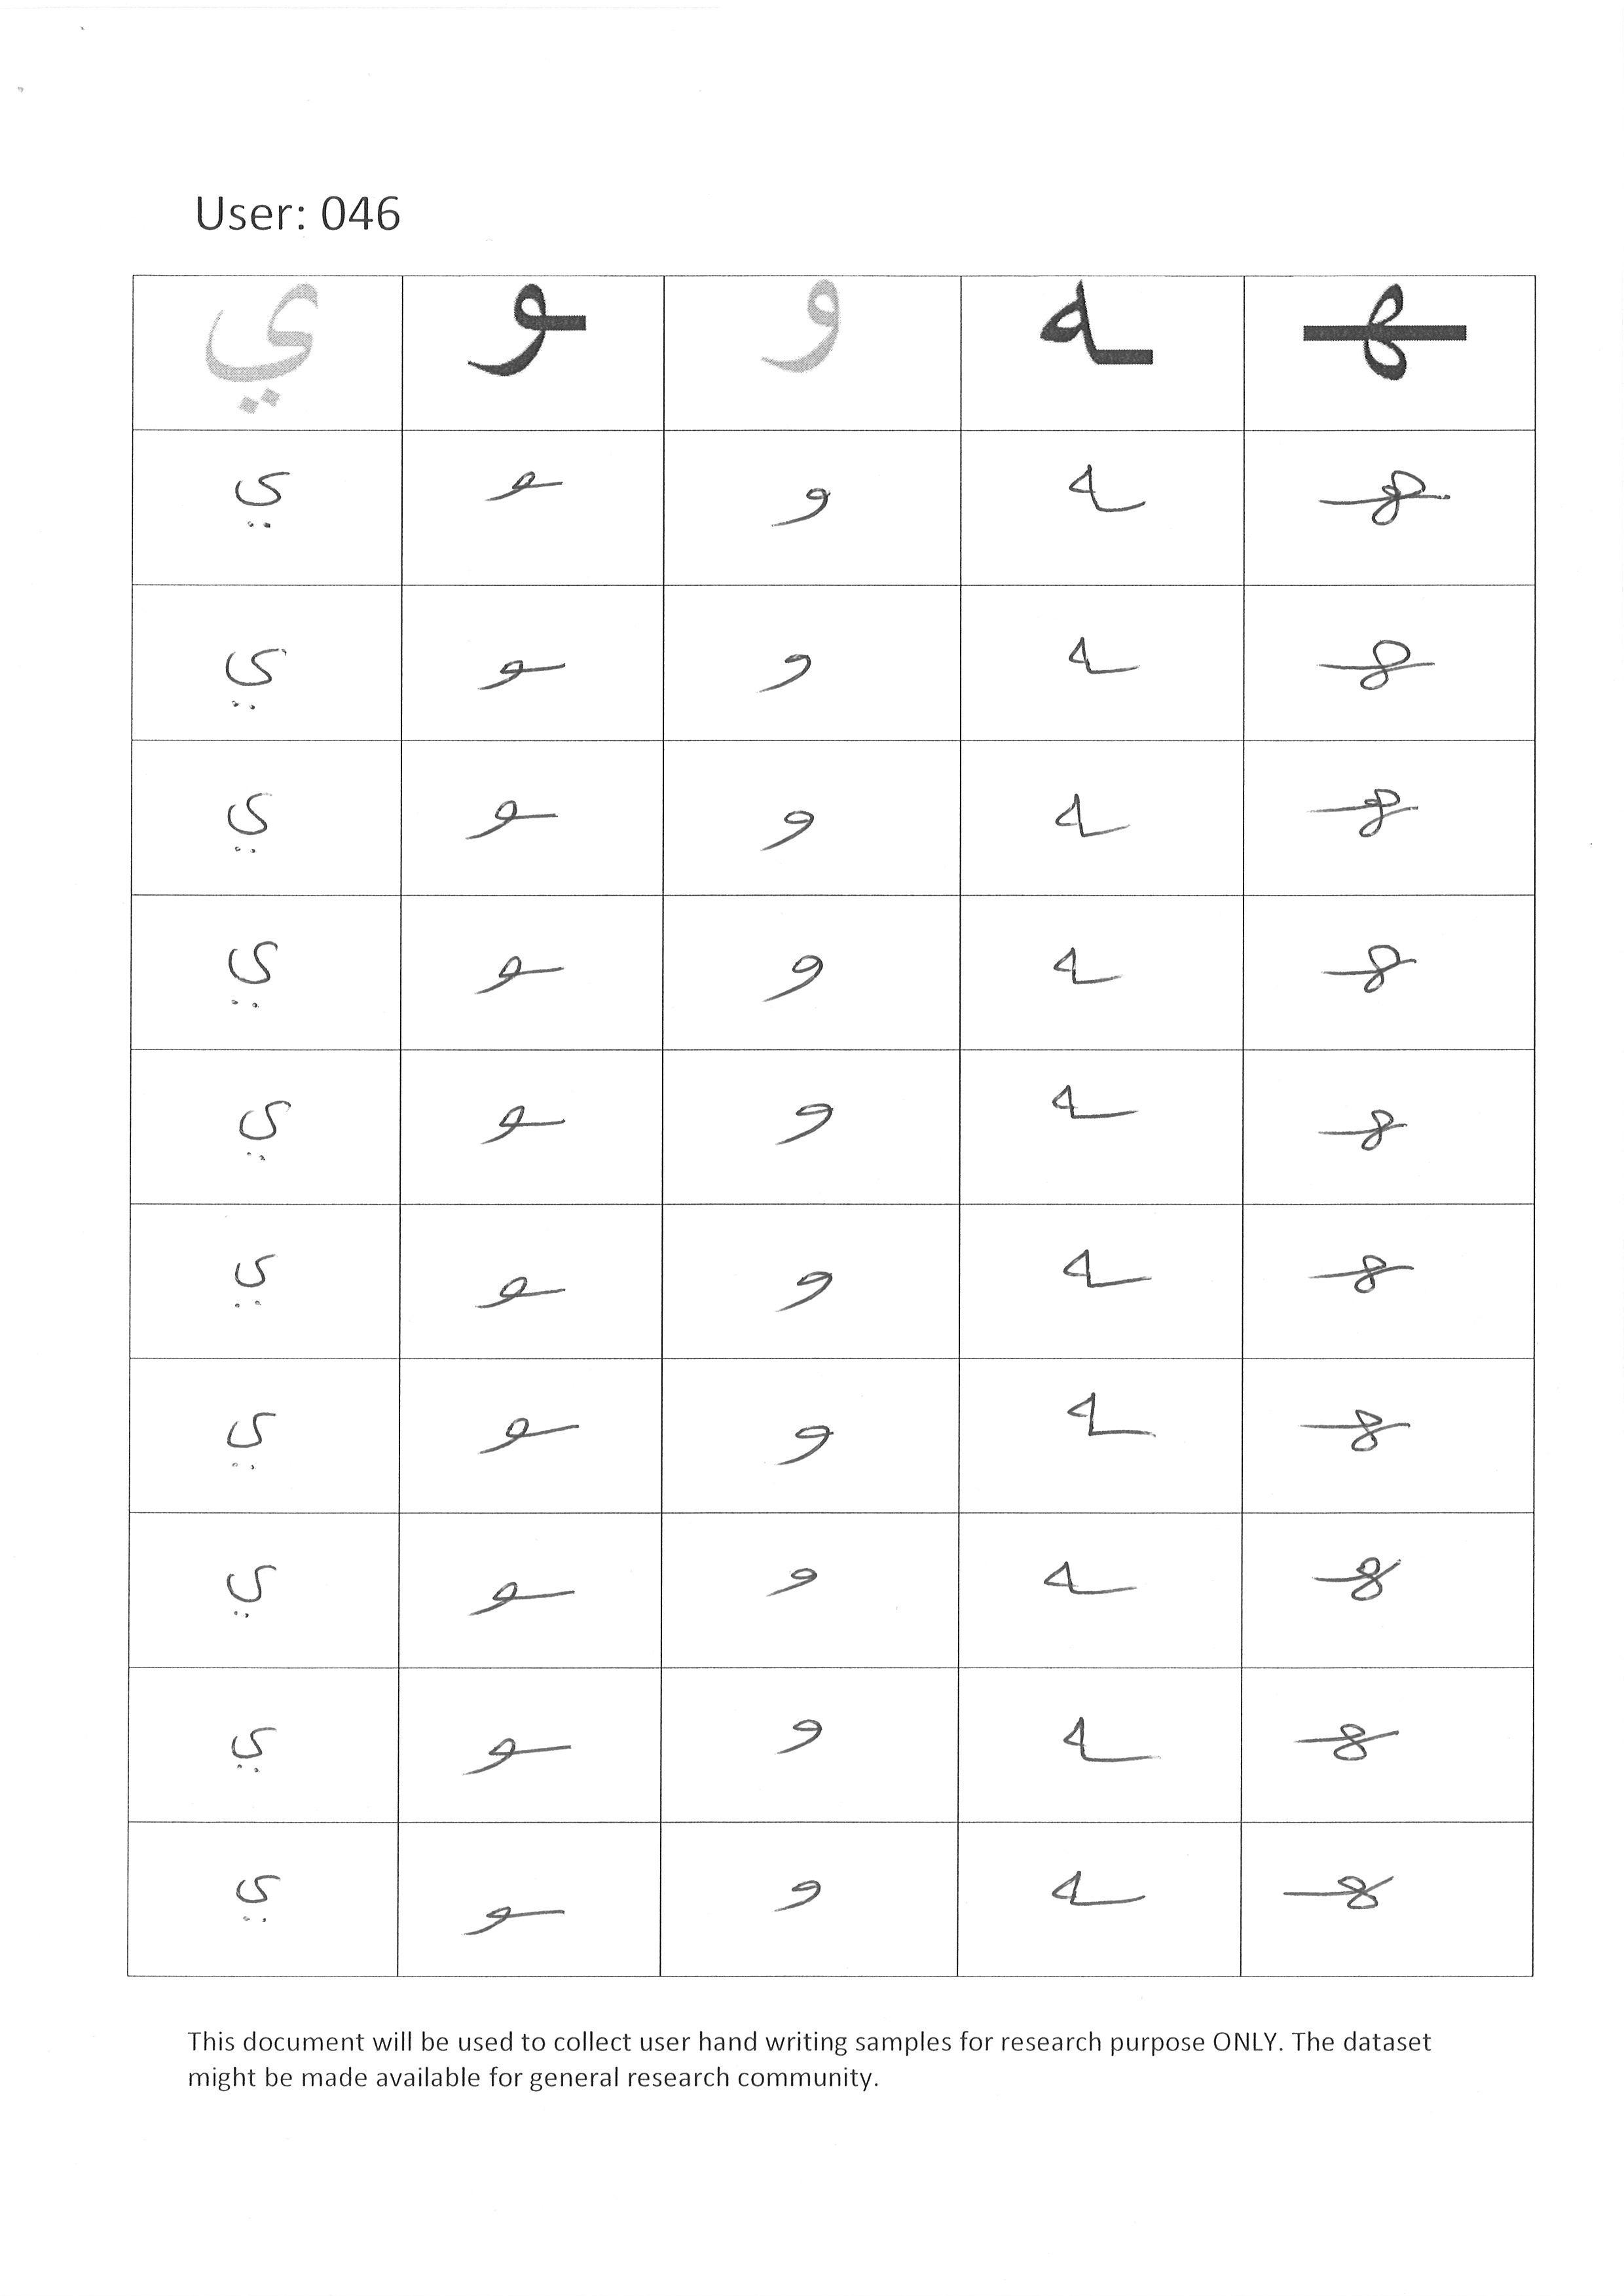 User: 046
ي ـو و ـه ـهـ
ي ـو و ـه ـهـ
ي ـو و ـه ـهـ
ي ـو و ـه ـهـ
ي ـو و ـه ـهـ
ي ـو و ـه ـهـ
ي ـو و ـه ـهـ
ي ـو و ـه ـهـ
ي ـو و ـه ـهـ
ي ـو و ـه ـهـ
ي ـو و ـه ـهـ
This document will be used to collect user hand writing samples for research purpose ONLY. The dataset
might be made available for general research community.